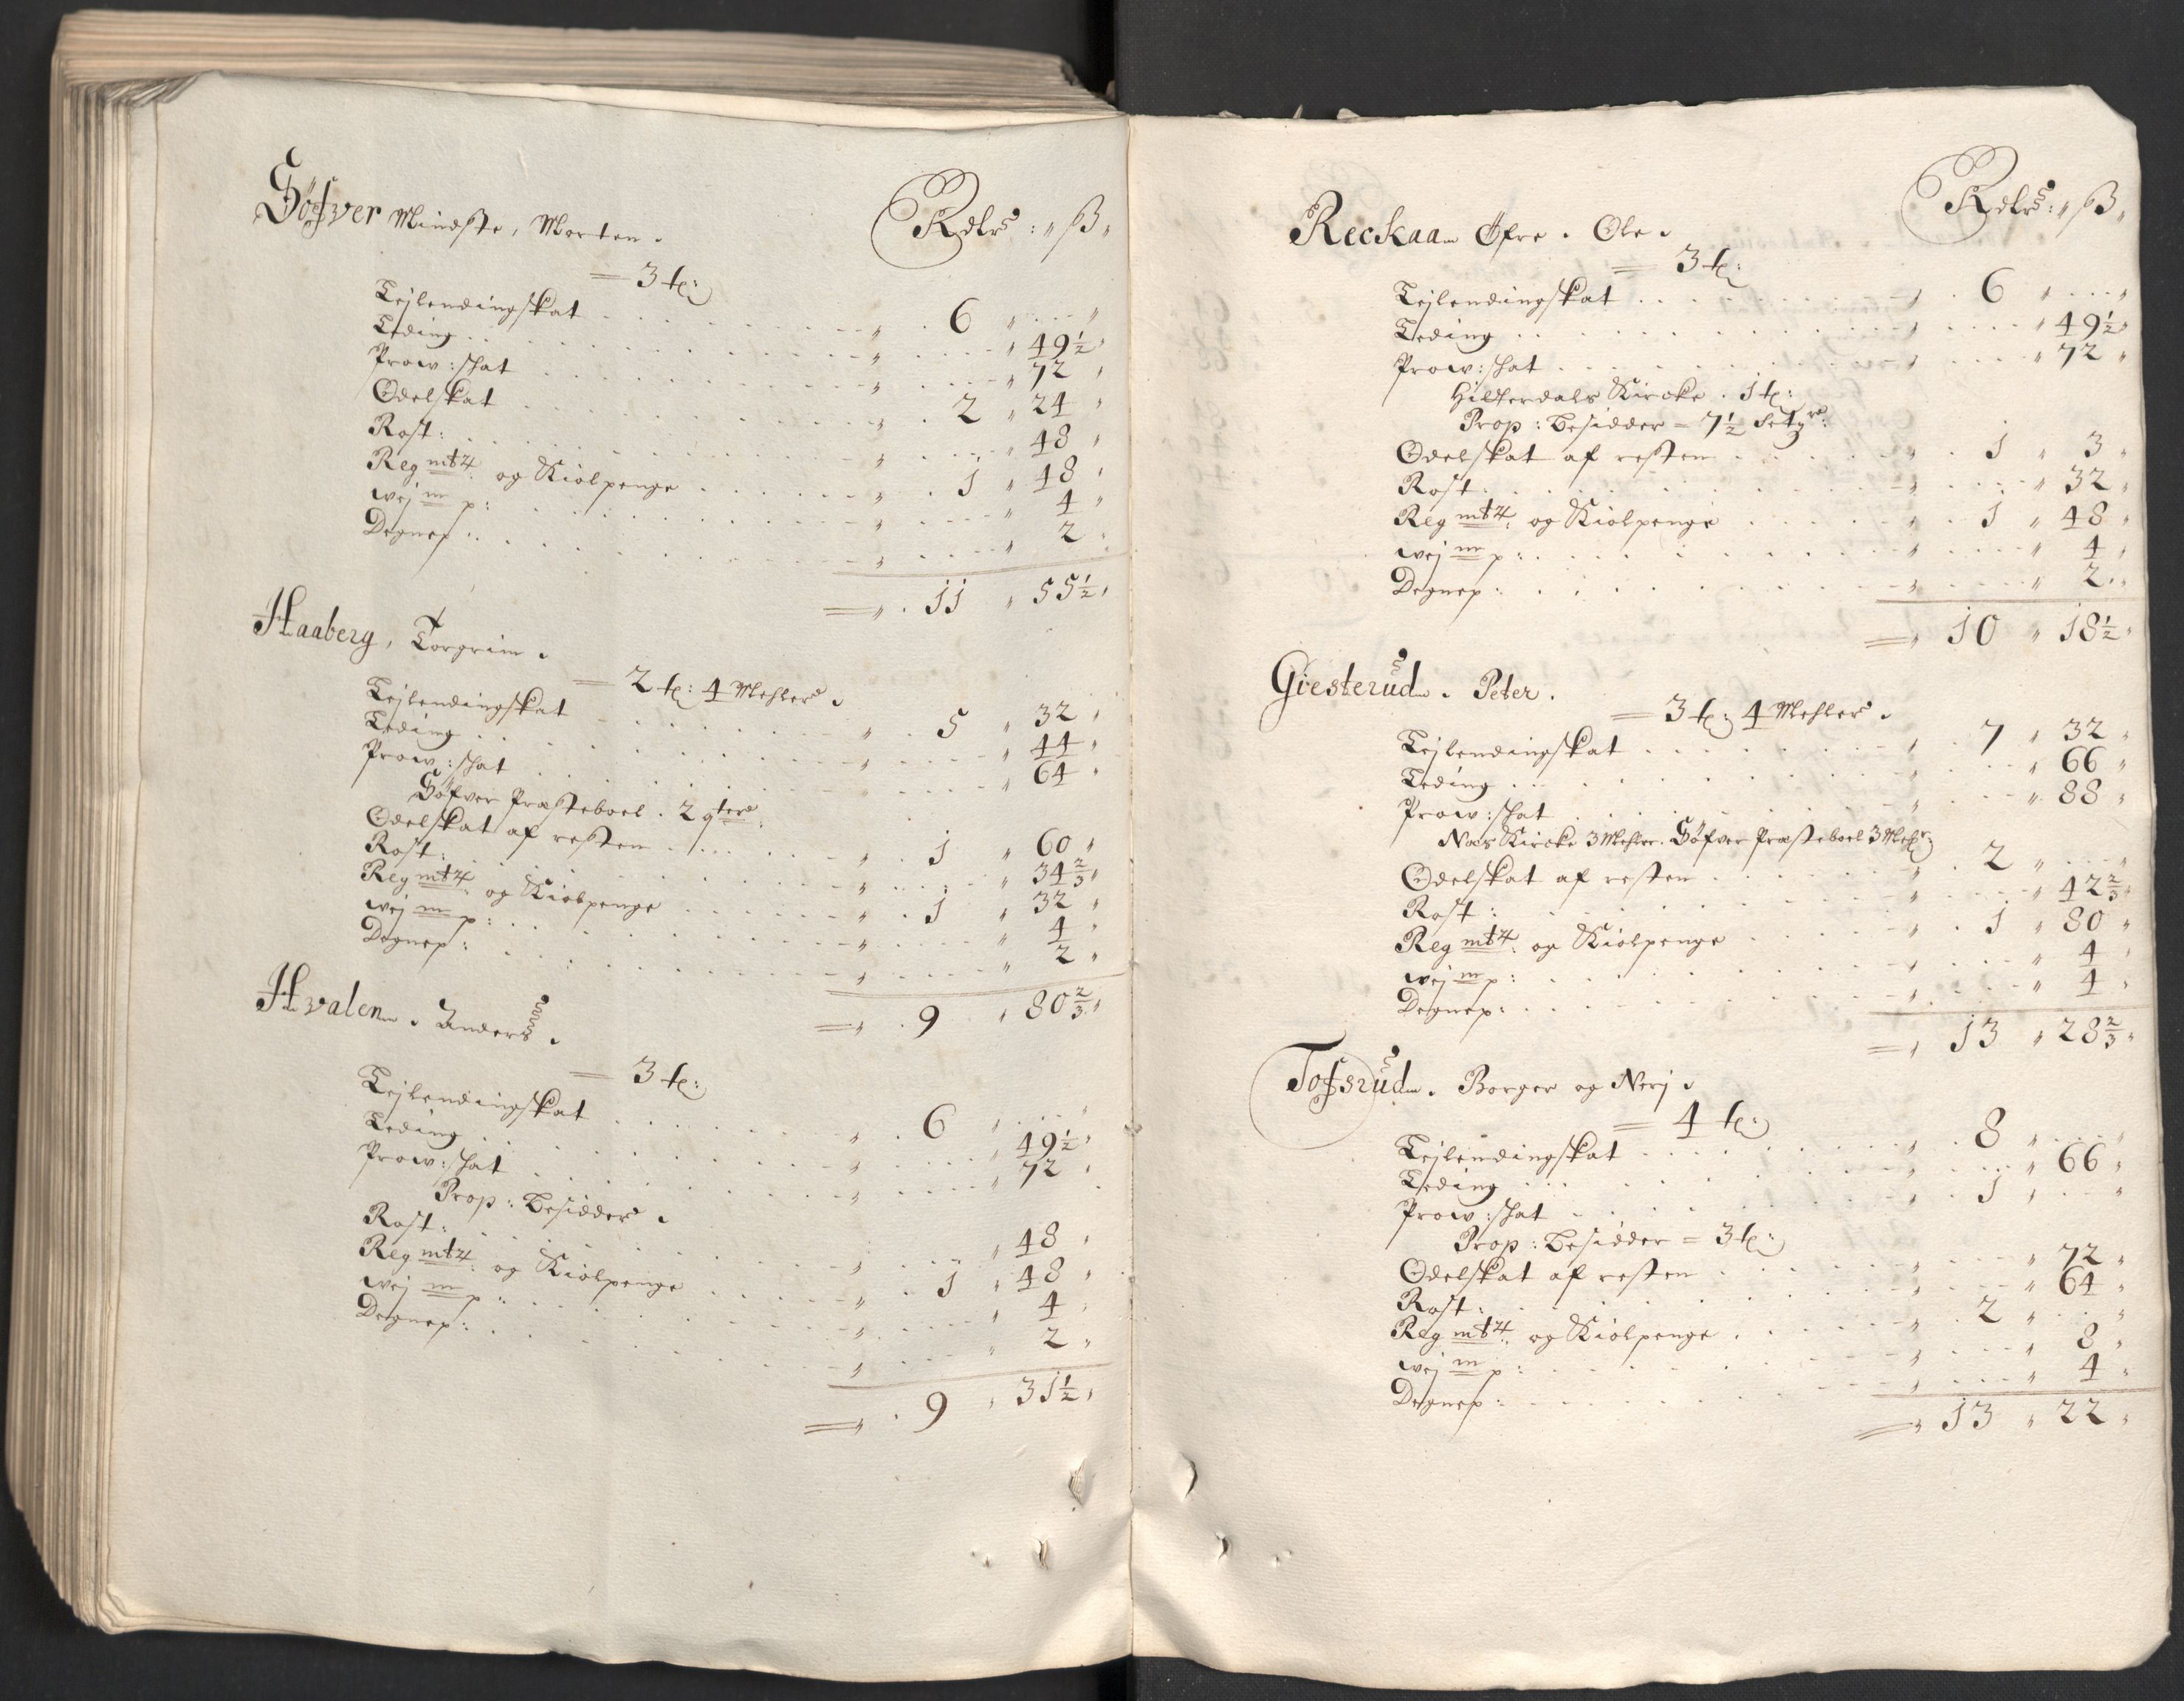 Göfver Mindste, Morten. Rdlrs: ß
= 3 t:
Lejlendingskat 6
Leding 49½
Prow: shat 72
Odelskat 2 24
Rost: 48
Reg mt4 og Kiolpenge 1 48
wej m p: 4
Degnep: 2
= 11 55½
Haaberg, Torgrim.
= 2 t: 4 Mehler.
Lejlendingskat 5 32
Leding 44
Prow: shat 64
Göfver Præsteboel. 2 qter
Odelskat af resten 1 60
Rost: 34⅔
Reg mt4 og Kiolpenge 1 32
wej m p: 4
Degnep: 2
= 9 80⅔
Hvalen. Anders.
= 3 t:
Lejlendingskat 6
Leding 49½
Prow: shat 72
Prop: Besidder.
Rost: 48
Reg mt4 og Kiolpenge 1 48
wej m p: 4
Degnep: 2
= 9 31½
Reckaa Öfre. Ole. Rdlrs: ß
= 3 t:
Lejlendingskat 6
Leding 49½
Prow: shat 72
Hitterdals Kircke. 1 t:
Prop: Besidder = 7½ Setgr:
Odelskat af resten 1 3
Rost: 32
Reg mt4 og Kiolpenge 1 48
wej m p: 4
Degnep: 2
= 10 18½
Giesterud. Peter.
= 3 t: 4 Mehler.
Lejlendingskat 7 32
Leding 66
Prow: shat 88
Næs Kircke 3 Mehler. Göfver Præsteboel 3 Mehr:
Odelskat af resten 2
Rost: 42⅔
Reg mt4 og Kiolpenge 1 80
wej m p: 4
Degnep: 4
= 13 28⅔
Tofsrud. Borger og Nerj.
= 4 t:
Lejlendingskat 8
Leding 66
Prow: shat 1
Prop: Besidder = 3 t:
Odelskat af resten 72
Rost: 64
Reg mt4 og Kiolpenge 2
wej m p: 8
Degnep: 4
= 13 22